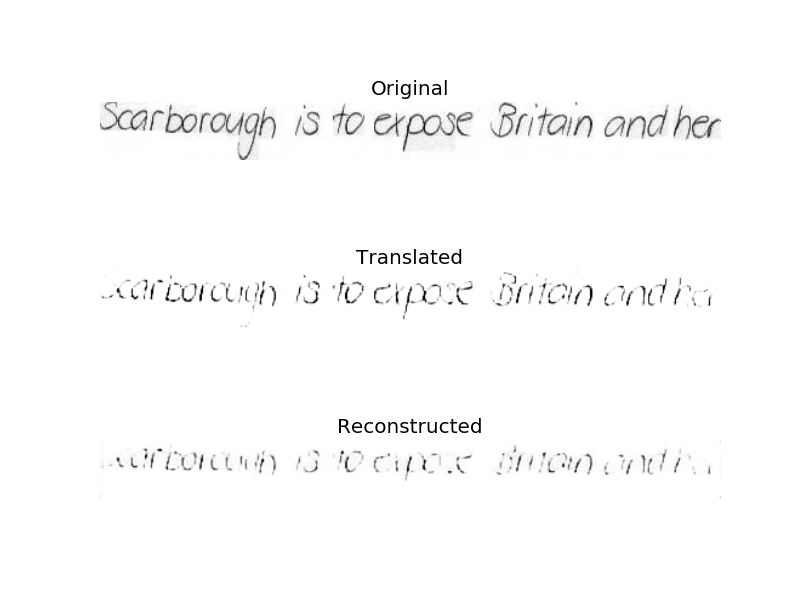 Original
Scarborough is to expose Britain and her
Translated
Scarborough is to expose Britain and her
Reconstructed
Scarborough is to expose Britain and her